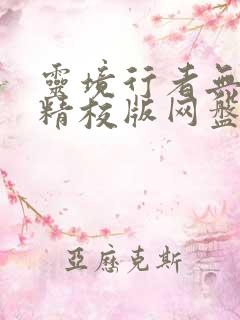 靈境行者無
精校版网盤
亞歷克斯